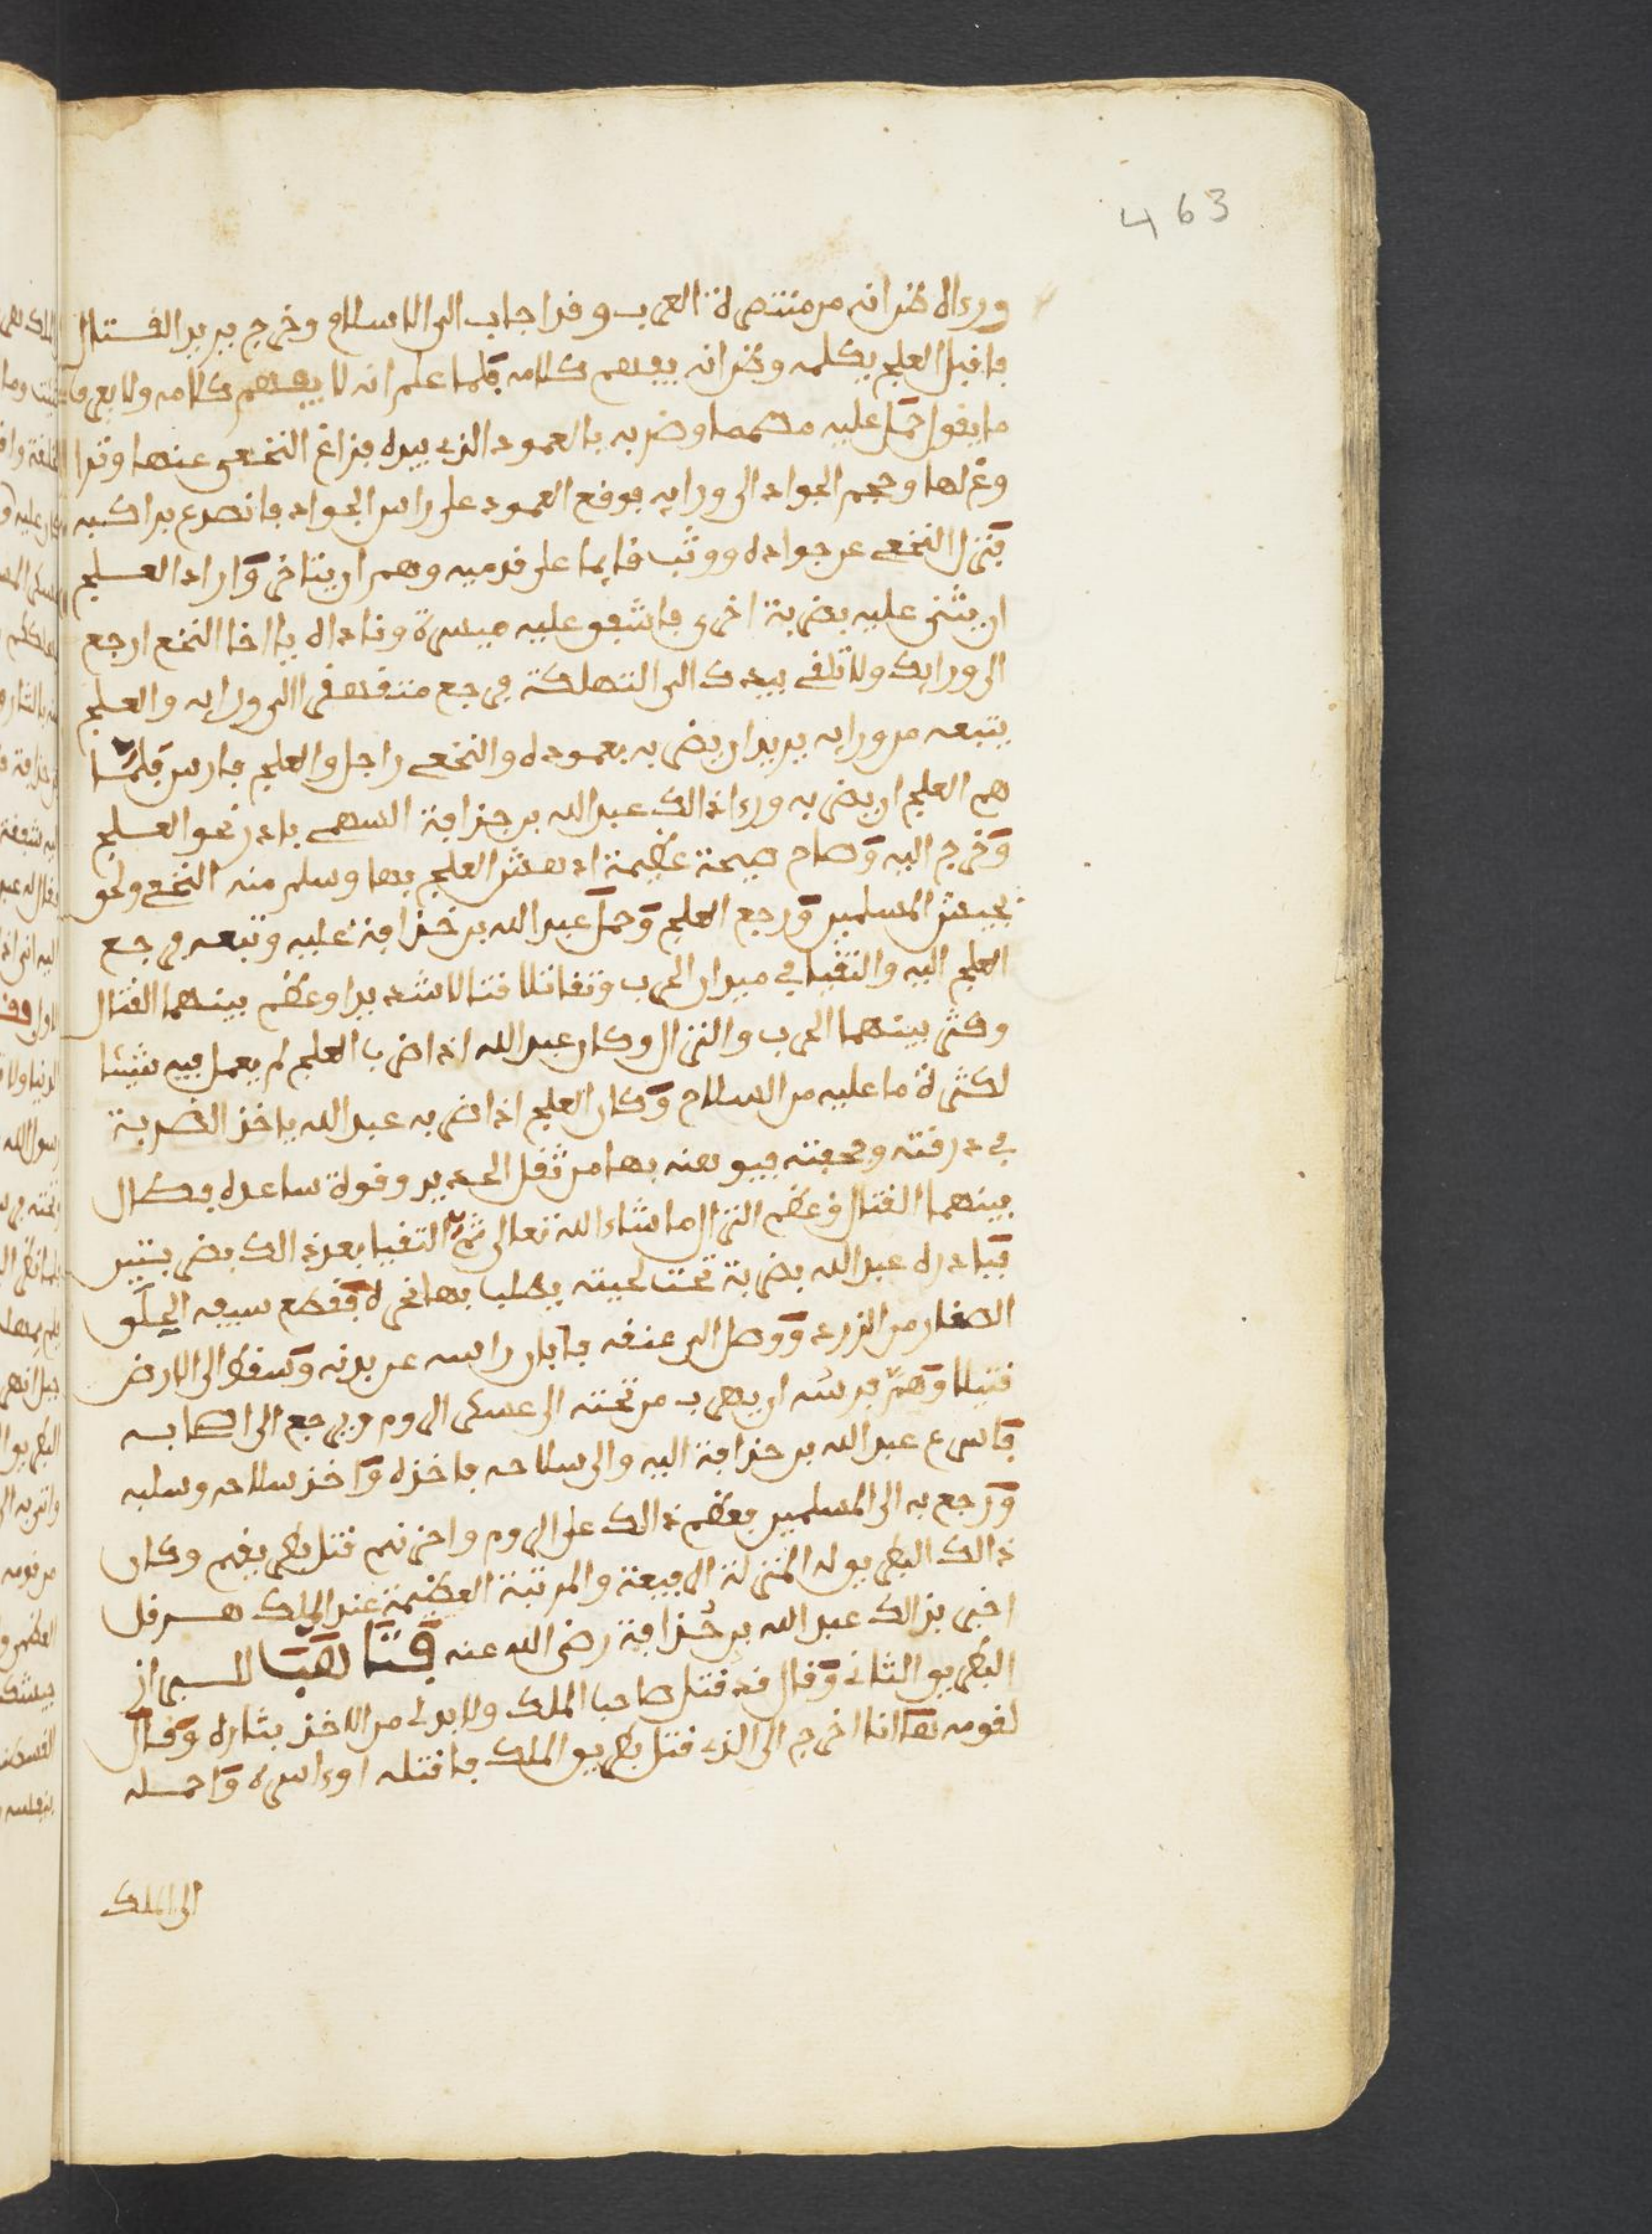 463
ورءاه ظن انه من متنصرة العرب وقد اجاب الى الاسلام وخرج يريد القتال
فاقبل العلج يكلمه وظن انه يفهم كلامه فلما علم انه لا يفهم كلامه ولا يعرف
ما يقول حمل عليه مصمما وضربه بالعمود الذي بيده فزاغ النخعي عنها
وحجم الجواد الى ورايه فوقع العمود على راس الجواد فانصرع براكبه
فنزل النخعي عن جواده ووثب قايما على قدميه وهم ان يتاخر واراد العلج
ان يثني عليه بضربة اخرى فاشفق عليه ميسرة وناداه يا اخا النخع ارجع
الى ورايك ولا تلقي بيدك الى التهلكة فرجع متقهقرا الى ورايه والعلج
يتبعه من ورايه يريد ان يضربه بعموده والنخعي راجل والعلج فارس فلما
هم العلج ان يضربه ورءا ذالك عبد الله بن حذافة السهمي بادر نحو العلج
وخرج اليه وصاح صيحة عظيمة ادهش العلج بها وسلم منه النخعي ولحق
بجيش المسلمين ورجع العلج وحمل عبد الله بن حذافة عليه وتبعه فرجع
العلج اليه والتقيا في ميدان الحرب وتقاتلا قتالا شديدا وعظم بينهما القتال
وكثر بينهما الحرب والنزال وكان عبد الله اذا ضرب العلج لم يعمل فيه شيئا
لكثرة ما عليه من السلاح وكان العلج اذا ضربه عبد الله ياخذ الضربة
في درقته وحجفته فيوهنه بها من ثقل الحديد وقوة ساعده فطال
بينهما القتال وعظم النزال ما شاء الله تعالى ثم التقيا بعد ذالك بضربتين
فبادره عبد الله بضربة تحت لحيته يطلب بها نحره فقطع سيفه الحلق
الصغار من الزرد ووصل الى عنقه فابان راسه عن بدنه وسقط الى الارض
قتيلا وهم فرسه ان يهرب من تحته الى عسكر الروم ويرجع الى اصحابه
فاسرع عبد الله بن حذافة اليه والى سلاحه فاخذه واخذ سلاحه وسلبه
ورجع به الى المسلمين فعظم ذالك على الروم واحزنهم قتل بطريقهم وكان
ذالك البطريق له المنزلة الرفيعة والمرتبة العظيمة عند الملك هرقل
اخبر بذالك عبد الله بن حذافة رضي الله عنه
البطريق الثاني وقال قد قتل صاحب الملك ولا بد لي من الاخذ بثاره وقال
لقومه ها انا اخرج الى الذي قتل بطريق الملك فاقتله او ءاسره واحمله
الى الملك